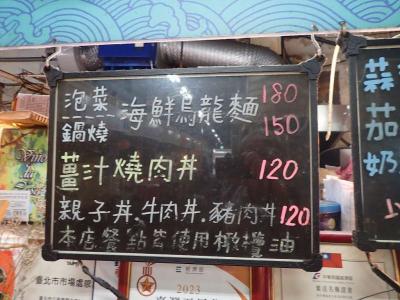 泡菜 海鮮烏龍麵 180
鍋燒 150
薑汁燒肉丼 120
親子丼.牛肉丼.豬肉丼 120
本店餐點皆使用橄欖油
蒜
茄
奶
臺北市市場處
2023